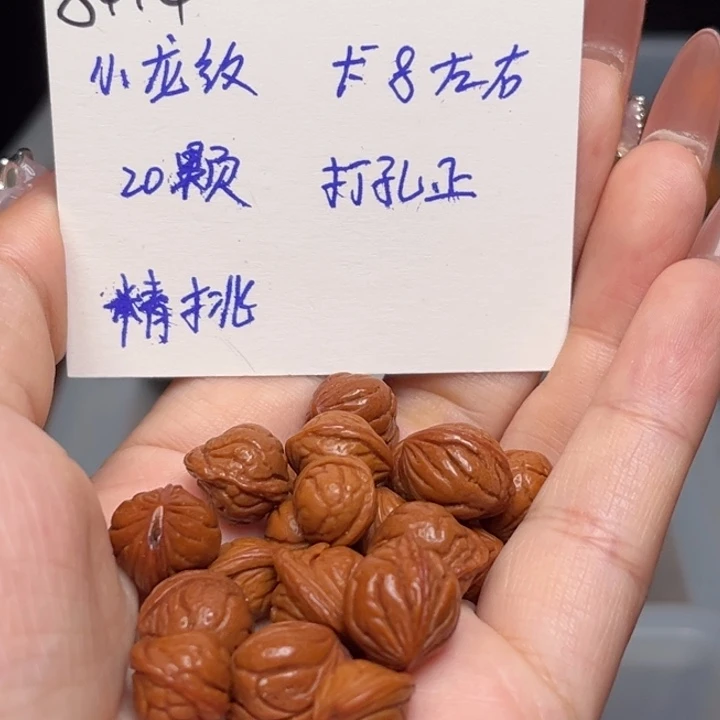 小龙纹 卡8左右
20颗 打孔正
精挑